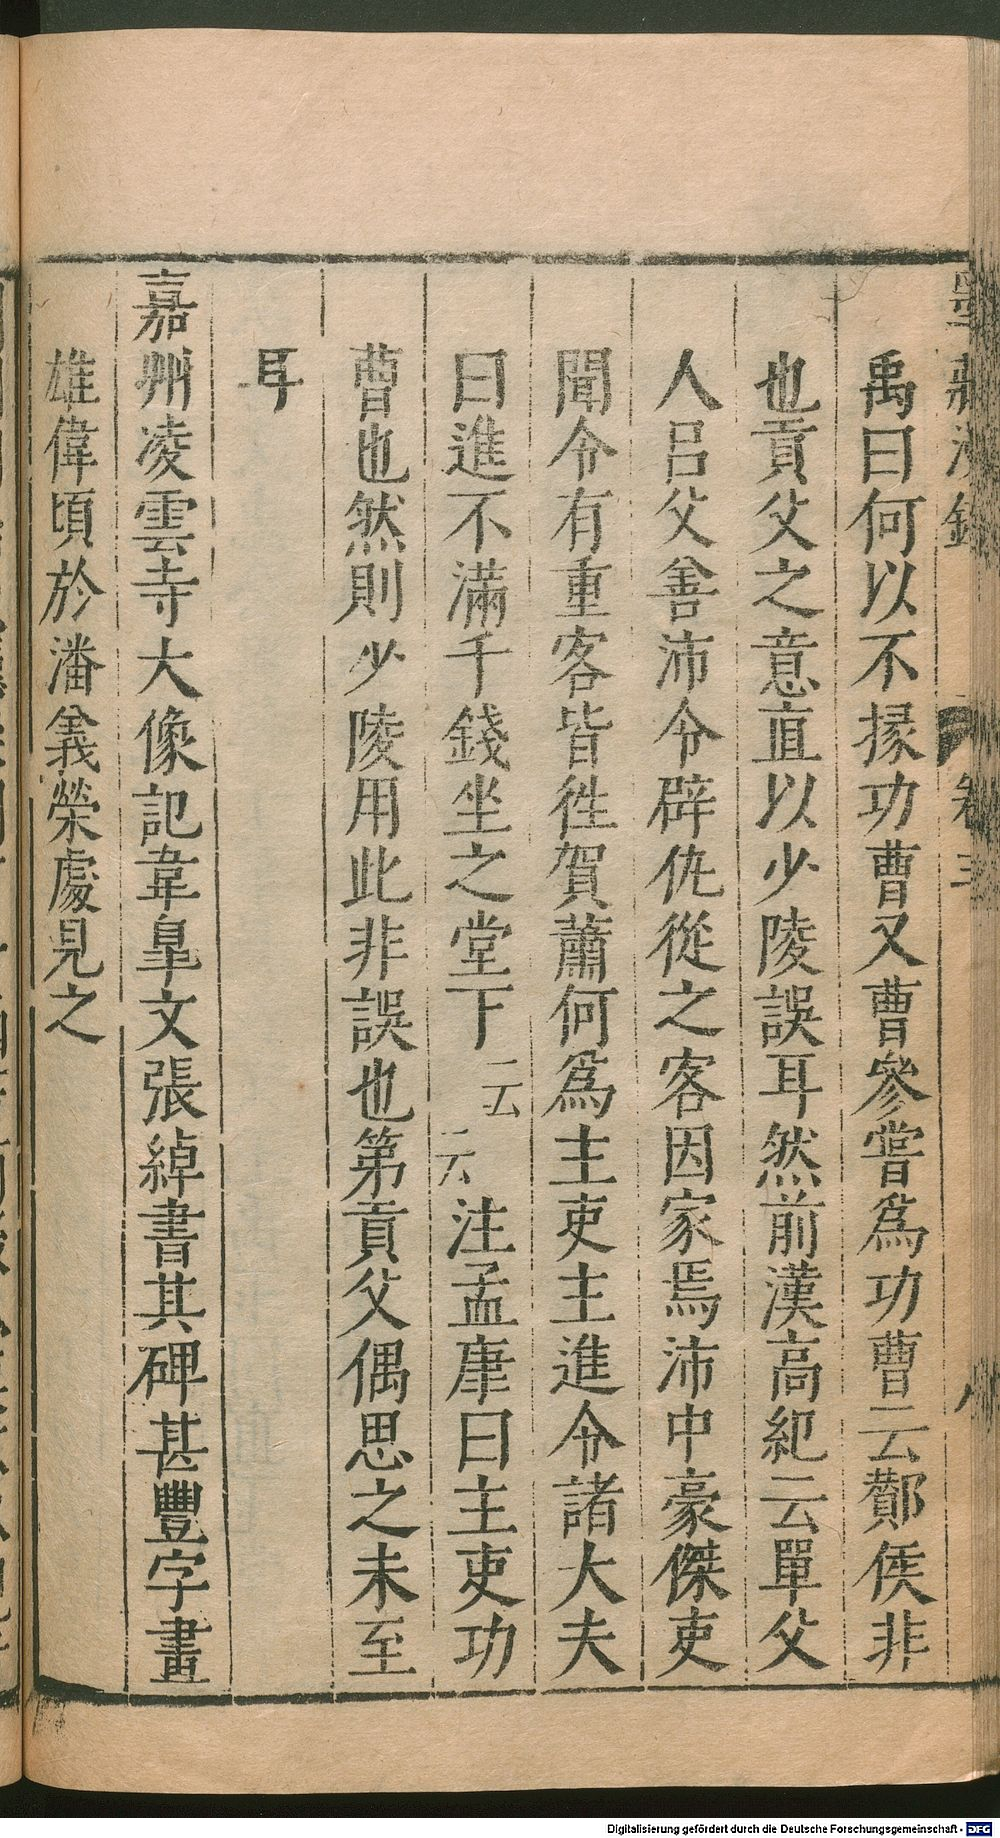 墨莊漫錄 卷三 八
禹曰何以不掾功曹又曹參嘗爲功曹云酇侯非
也貢父之意直以少陵誤耳然前漢高紀云單父
人呂父善沛令辟仇從之客因家焉沛中豪傑吏
聞令有重客皆徃賀蕭何爲主吏主進令諸大夫
曰進不滿千錢坐之堂下云云注孟康曰主吏功
曹也然則少陵用此非誤也第貢父偶思之未至
耳
嘉州凌雲寺大像記韋臯文張綽書其碑甚豐字畫
雄偉頃於潘義榮處見之
Digitalisierung gefördert durch die Deutsche Forschungsgemeinschaft - DFG